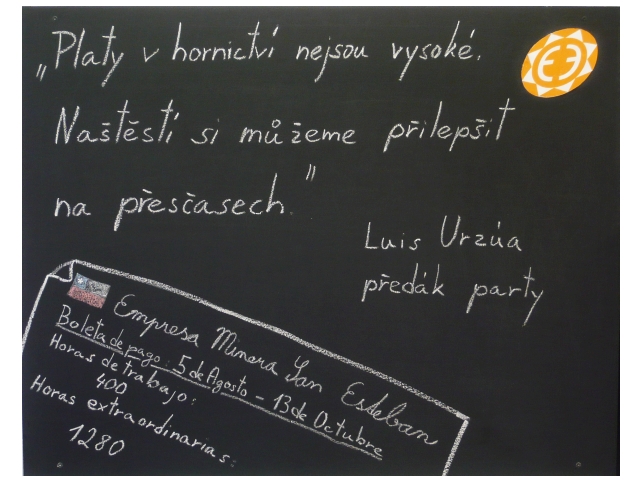 „Platy v hornictví nejsou vysoké.
Naštěstí si můžeme přilepšit
na přesčasech."
Luis Urzúa
předák party
Empresa Minera San Esteban
Boleta de pago: 5 de Agosto – 13 de Octubre
Horas de trabajo:
400
Horas extraordinarias:
1280